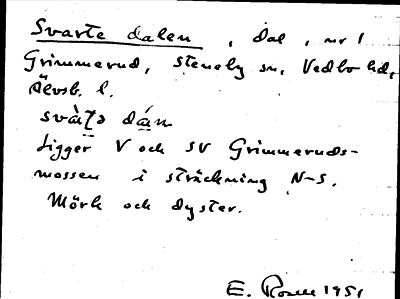 Svarte dalen, dal, nr 1
Grimmerud, Steneby sn, Vedbo hd,
Älvsb. l.
svàʈə dán
Ligger V och SV Grimmeruds-
mossen i sträckning N-S.
Mörk och dyster.
E. 1951